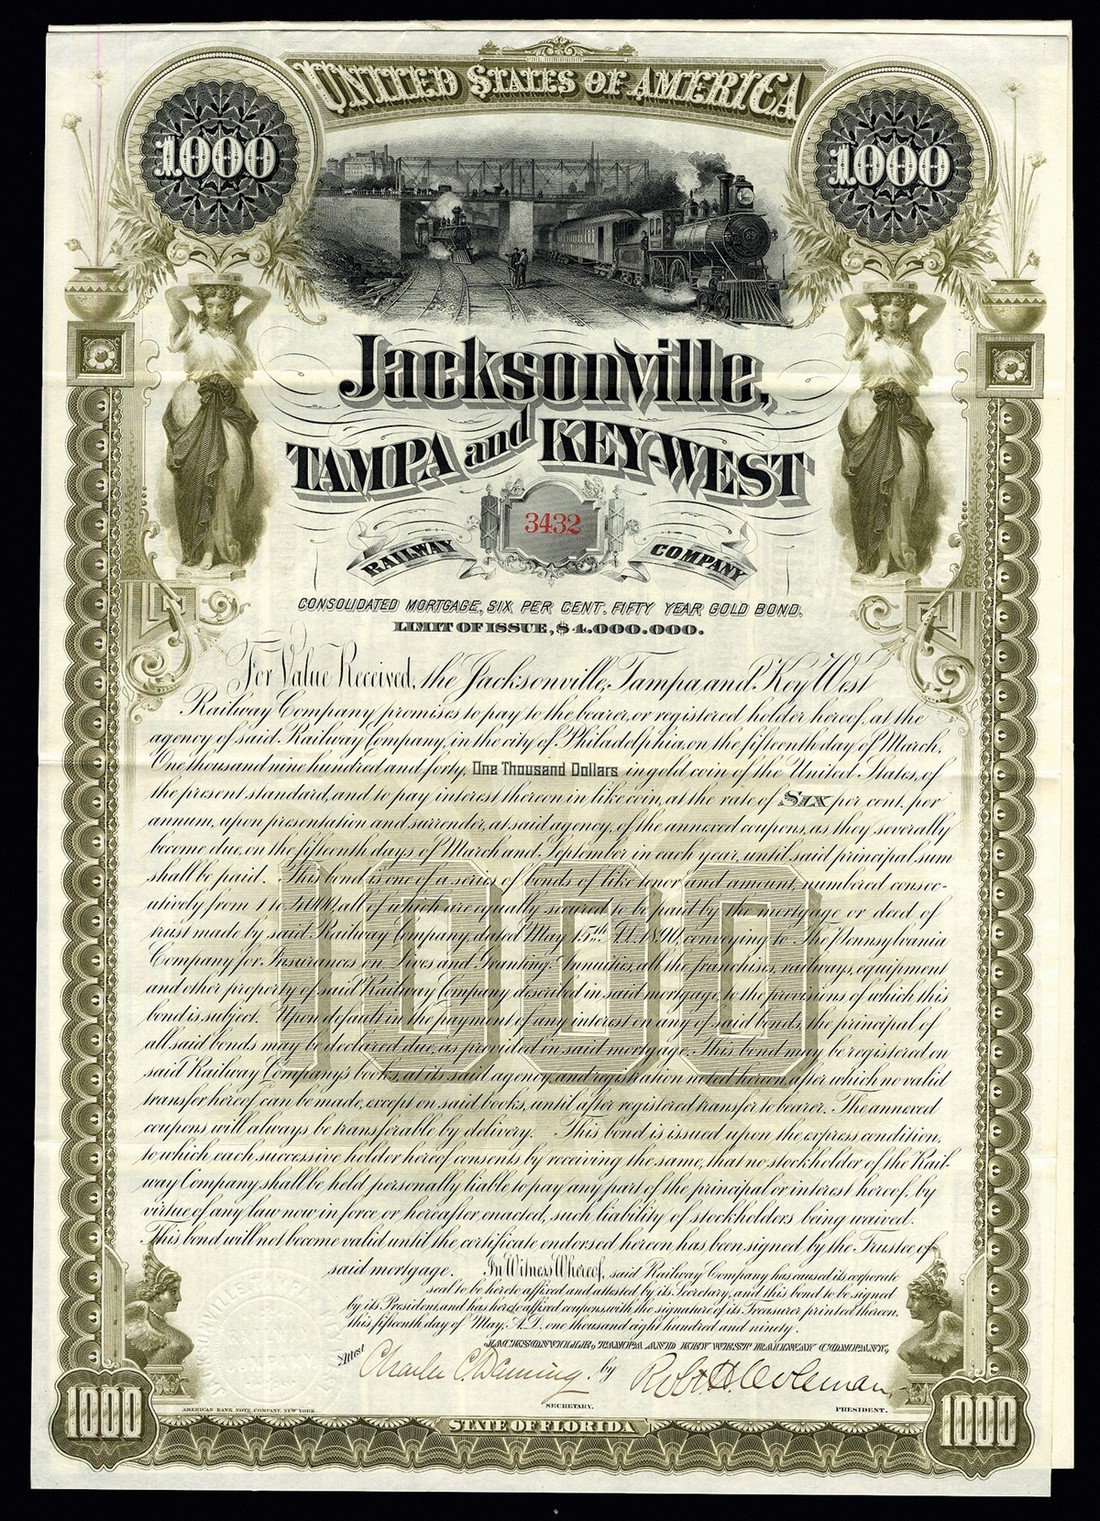 UNITED STATES OF AMERICA
1000
1000
Jacksonville,
TAMPA and KEY-WEST
3432
RAILWAY COMPANY
CONSOLIDATED MORTGAGE, SIX PER CENT. FIFTY YEAR GOLD BOND.
LIMIT OF ISSUE, $4,000,000.
For Value Received, the Jacksonville, Tampa and Key West
Railway Company promises to pay to the bearer, or registered holder hereof, at the
agency of said Railway Company, in the city of Philadelphia, on the fifteenth day of March,
One thousand nine hundred and forty, One Thousand Dollars in gold coin of the United States, of
the present standard, and to pay interest thereon in like coin, at the rate of SIX per cent. per
annum, upon presentation and surrender, at said agency, of the annexed coupons, as they severally
become due, on the fifteenth days of March and September in each year, until said principal sum
shall be paid. This bond is one of a series of bonds of like tenor and amount, numbered consec-
utively from 1 to 4000, all of which are equally secured to be paid by the mortgage or deed of
trust made by said Railway Company, dated May 15th A.D. 1890, conveying to The Pennsylvania
Company for Insurances on Lives and Granting Annuities, all the franchises, railways, equipment
and other property of said Railway Company described in said mortgage, to the provisions of which this
bond is subject. Upon default in the payment of any interest on any of said bonds, the principal of
all said bonds may be declared due, as provided in said mortgage. This bond may be registered on
said Railway Company's books, at its said agency, and registration noted hereon, after which no valid
transfer hereof can be made, except on said books, until after registered transfer to bearer. The annexed
coupons will always be transferable by delivery. This bond is issued upon the express condition,
to which each successive holder hereof consents by receiving the same, that no stockholder of the Rail-
way Company shall be held personally liable to pay any part of the principal or interest hereof, by
virtue of any law now in force or hereafter enacted, such liability of stockholders being waived.
This bond will not become valid until the certificate endorsed hereon has been signed by the Trustee of
said mortgage. In Witness Whereof, said Railway Company has caused its corporate
seal to be hereto affixed and attested by its Secretary, and this bond to be signed
by its President, and has hereto affixed coupons with the signature of its Treasurer printed thereon,
this fifteenth day of May, A.D. one thousand eight hundred and ninety.
JACKSONVILLE, TAMPA AND KEY WEST RAILWAY COMPANY,
Attest Charles C. Deming by Robt H. Coleman
SECRETARY. PRESIDENT.
AMERICAN BANK NOTE COMPANY, NEW YORK.
1000
STATE OF FLORIDA
1000
1000